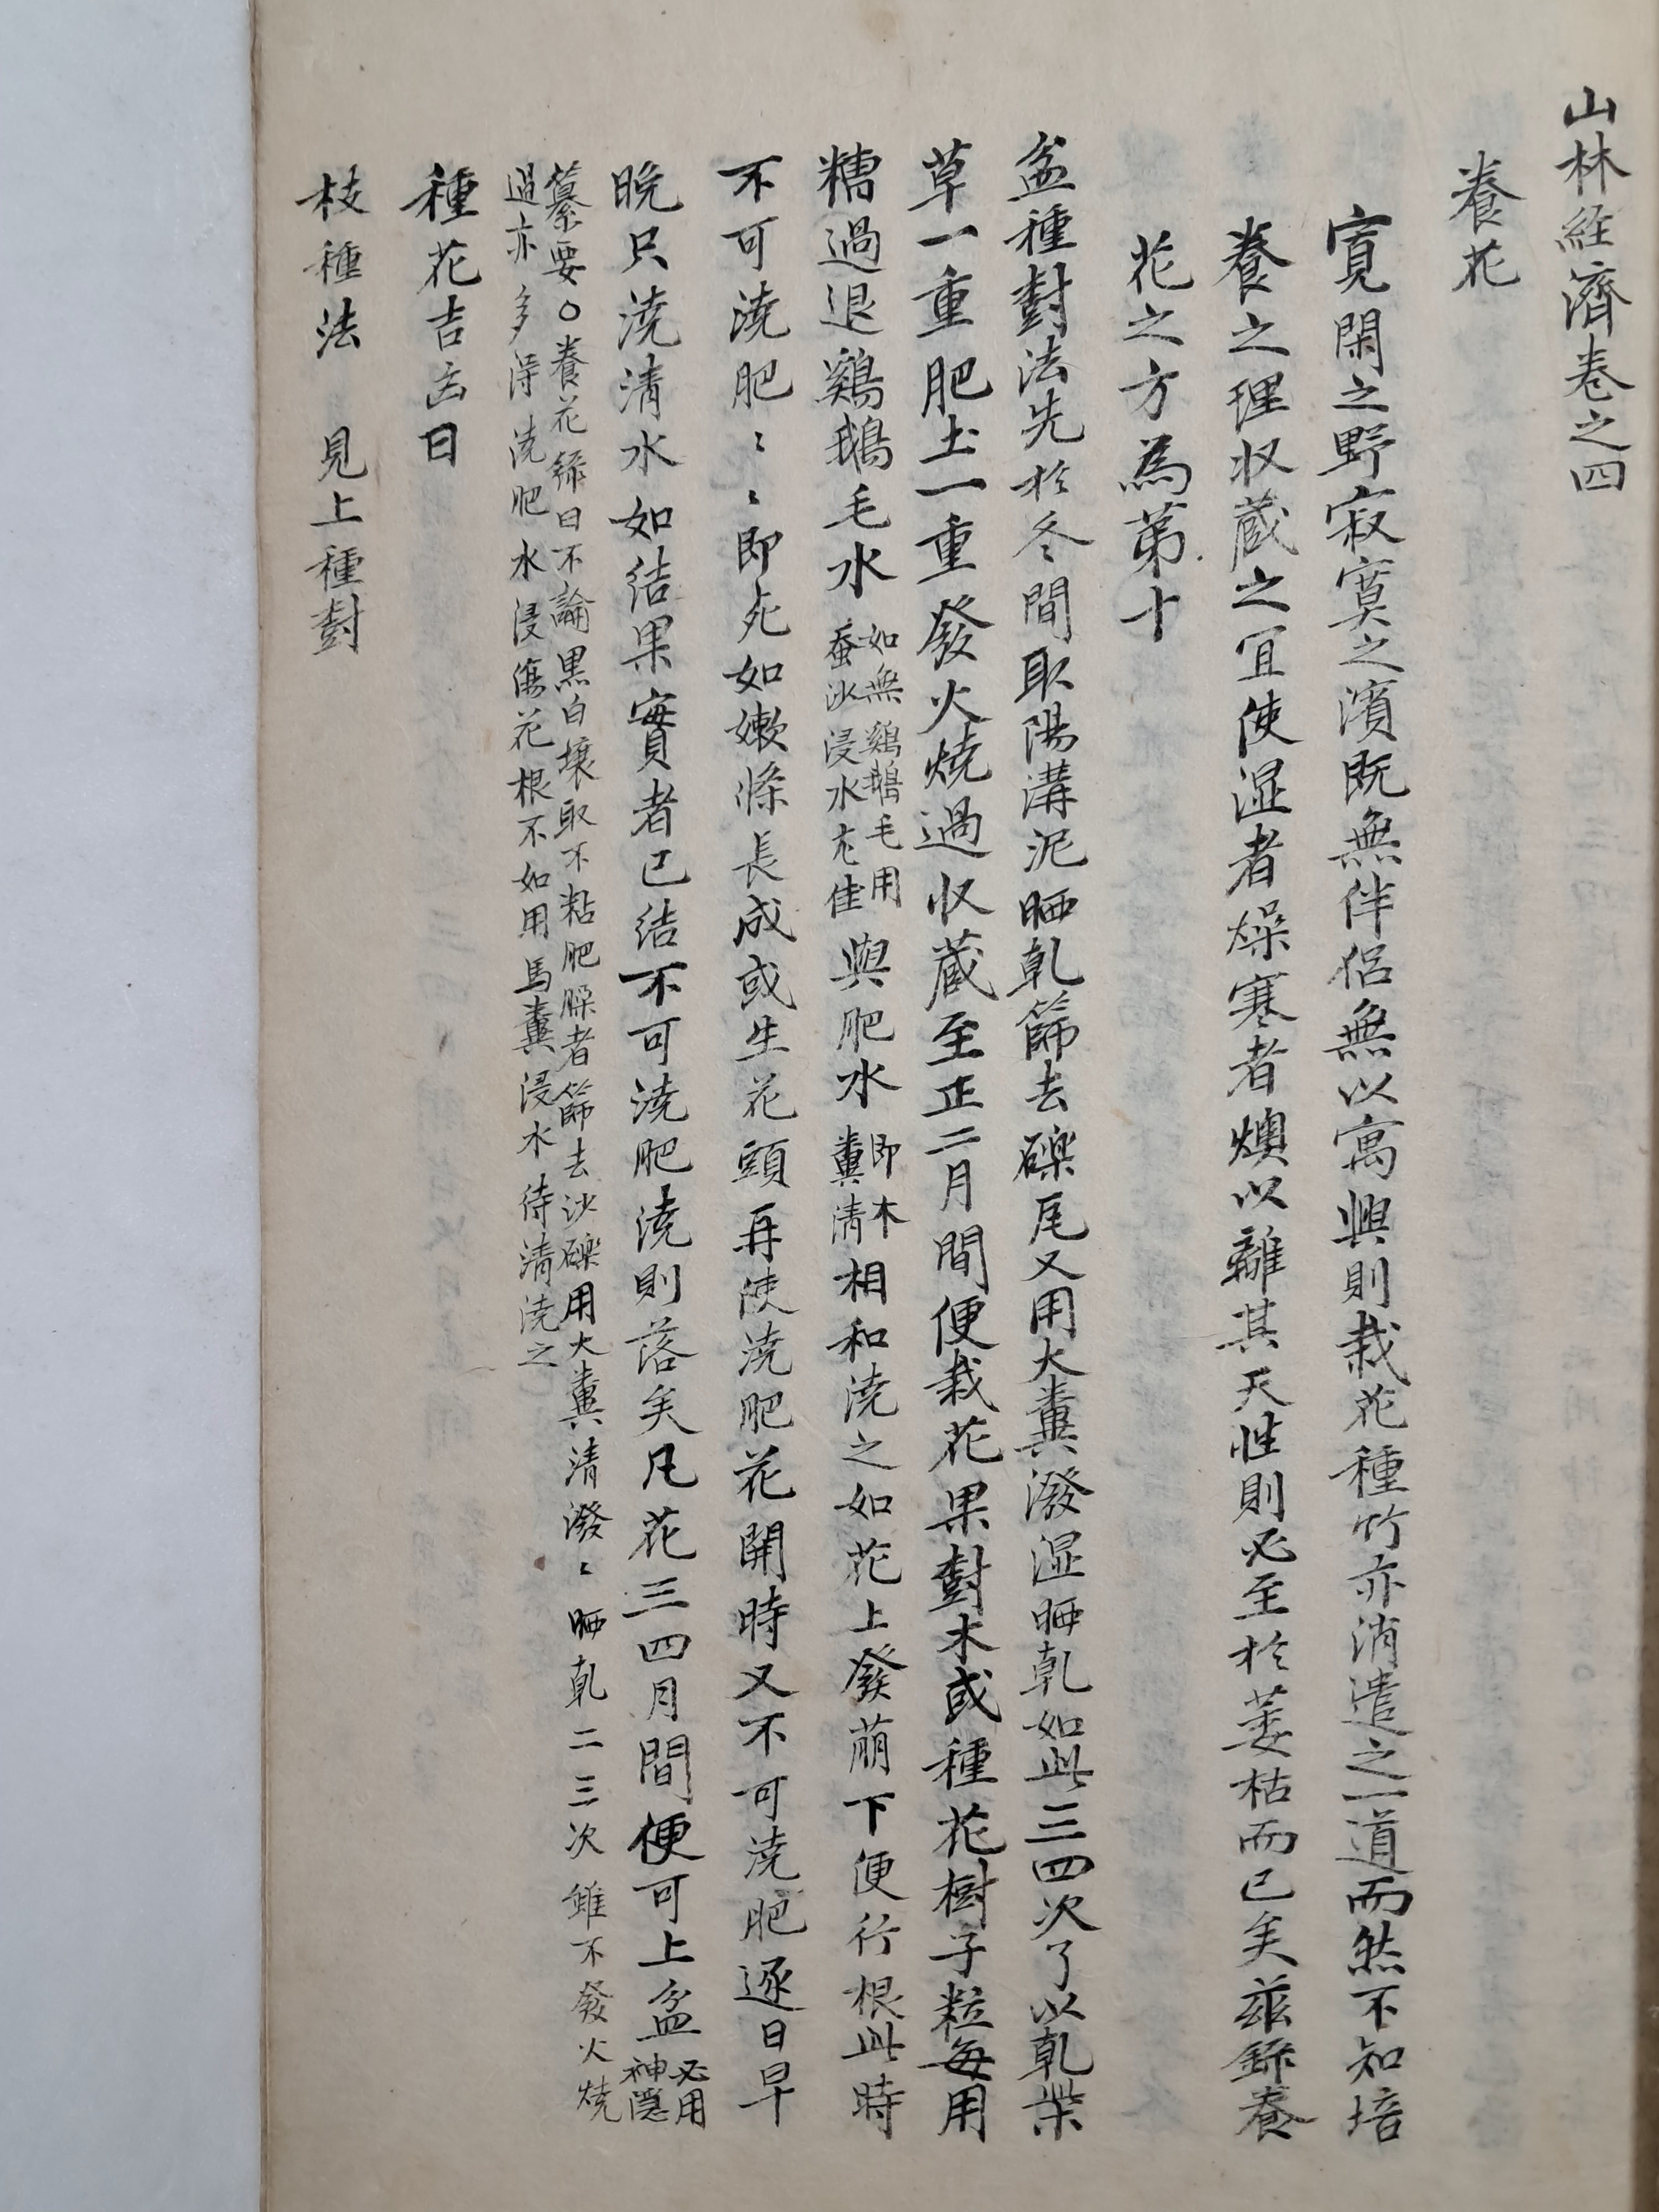 山林経濟卷之四
養花
寛閑之野寂寞之濱既無伴侶無以寓興則栽花種竹亦消遣之一道而然不知培
養之理収蔵之宜使湿者燥寒者燠以離其天性則必至於萎枯而已矣茲錄養
花之方為第十
盆種對法先於冬間取陽溝泥晒乾篩去礫尾又用大糞潑湿晒乾如此三四次了以乾柴
草一重肥土一重發火燒過収蔵至正二月間便栽花果對木或種花樹子粒每用
糟過退鷄鵝毛水
如無鷄鵝毛用
蚕沙浸水尤佳
與肥水
即木
糞清
相和澆之如花上發萠下便行根此時
不可澆肥〻〻即死如嫩條長成或生花頭再使澆肥花開時又不可澆肥逐日早
晚只澆清水如结果實者已结不可澆肥澆則落矣凡花三四月間便可上盆
必用
神隠
纂要○養花錄曰不論黒白壤取不粘肥臊者篩去沙礫用大糞清潑〻晒乾二三次雖不發火燒
過亦多得澆肥水浸傷花根不如用馬糞浸水待清澆之
種花吉凶日
枝種法　見上種對